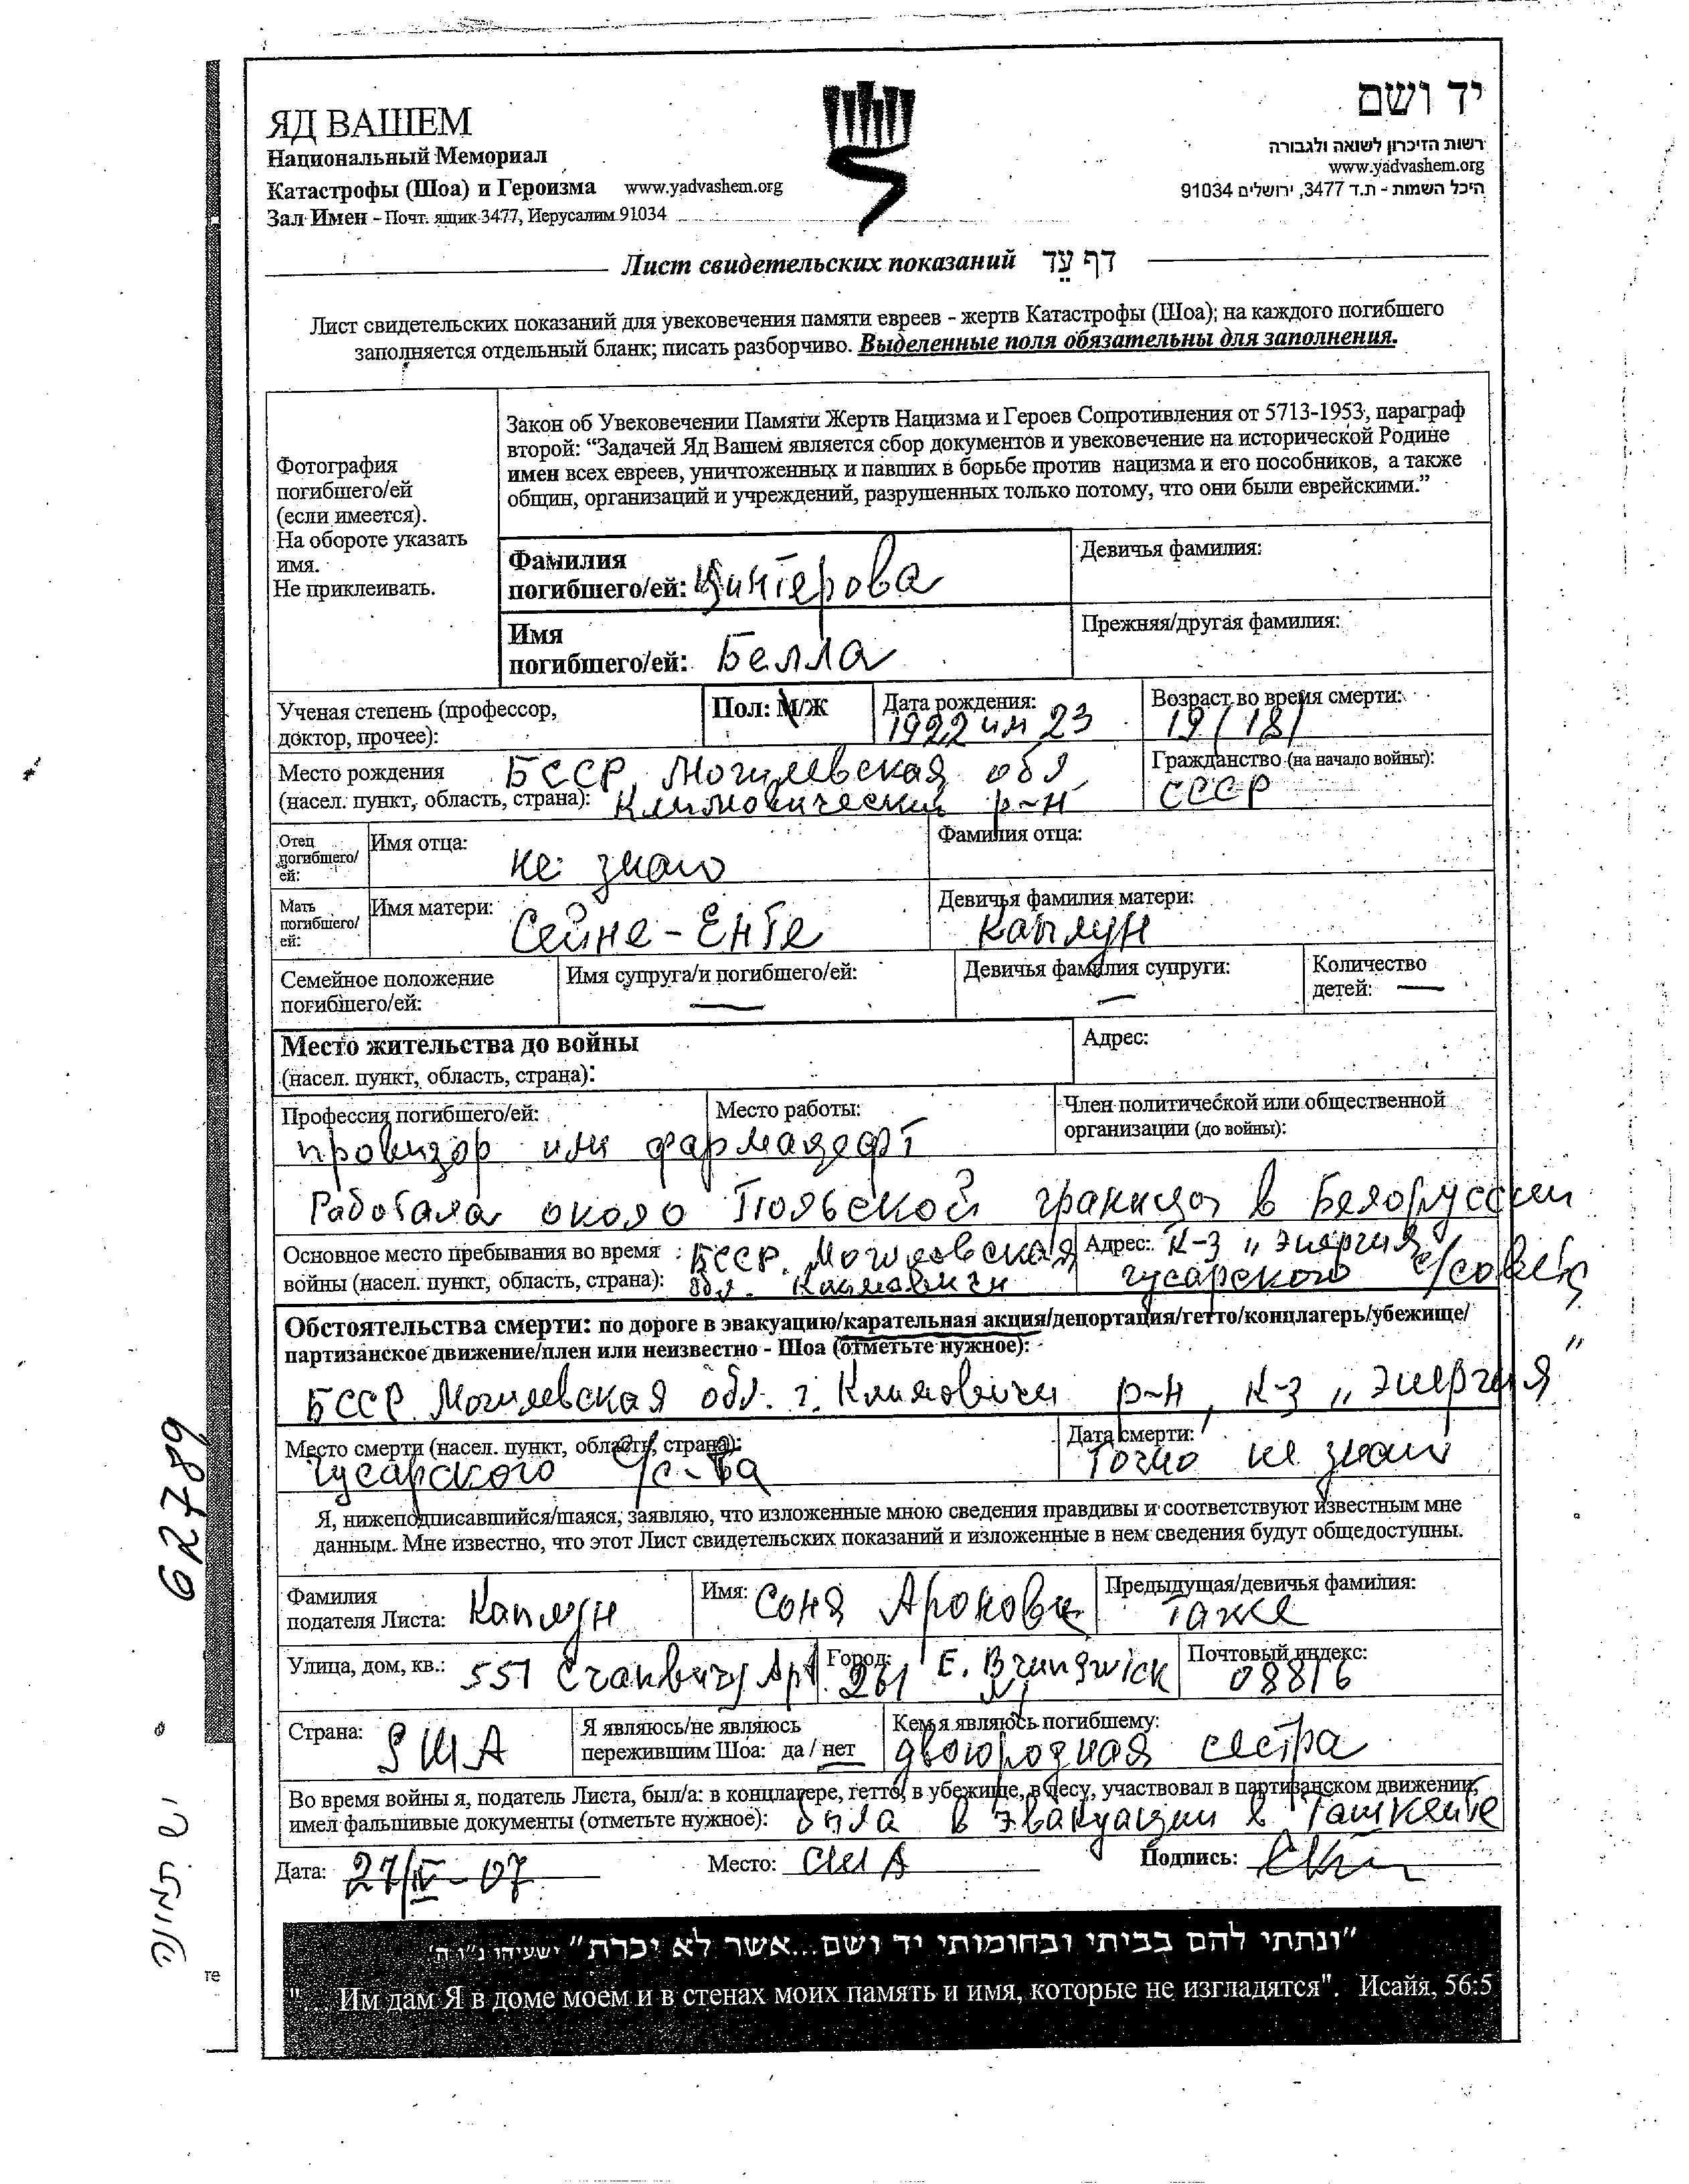 ЯД ВАШЕМ
Национальный Мемориал
Катастрофы (Шоа) и Героизма www.yadvashem.org
Зал Имен - Почт. ящик 3477, Иерусалим 91034
יד ושם
רשות הזיכרון לשואה ולגבורה
www.yadvashem.org
היכל השמות - ת.ד 3477, ירושלים 91034
Лист свидетельских показаний דף עֵד
Лист свидетельских показаний для увековечения памяти евреев - жертв Катастрофы (Шоа); на каждого погибшего
заполняется отдельный бланк; писать разборчиво. Выделенные поля обязательны для заполнения.
Фотография
погибшего/ей
(если имеется).
На обороте указать
имя.
Не приклеивать.
Закон об Увековечении Памяти Жертв Нацизма и Героев Сопротивления от 5713-1953, параграф
второй: “Задачей Яд Вашем является сбор документов и увековечение на исторической Родине
имен всех евреев, уничтоженных и павших в борьбе против нацизма и его пособников, а также
общин, организаций и учреждений, разрушенных только потому, что они были еврейскими.”
Фамилия
погибшего/ей: Цинтерова
Девичья фамилия:
Имя
погибшего/ей: Белла
Прежняя/другая фамилия:
Ученая степень (профессор,
доктор, прочее):
Пол: М/Ж
Дата рождения:
1922 или 23
Возраст во время смерти:
19 (18)
Место рождения БССР Могилевская обл
(насел. пункт, область, страна): Климовический р-н
Гражданство (на начало войны):
СССР
Отец
погибшего/
ей:
Имя отца:
не знаю
Фамилия отца:
Мать
погибшего/
ей:
Имя матери:
Сейне-Енте
Девичья фамилия матери:
Каплун
Семейное положение
погибшего/ей:
Имя супруга/и погибшего/ей:
—
Девичья фамилия супруги:
—
Количество
детей: —
Место жительства до войны
(насел. пункт, область, страна):
Адрес:
Профессия погибшего/ей:
Место работы:
провизор или фармацефт
Член политической или общественной
организации (до войны):
Работала около Польской границы в Белоруссии
Основное место пребывания во время БССР. Могилевская
войны (насел. пункт, область, страна): обл. Климовичи
Адрес: К-з „Энергия
Гусарского с/совета
Обстоятельства смерти: по дороге в эвакуацию/карательная акция/депортация/гетто/концлагерь/убежище/
партизанское движение/плен или неизвестно - Шоа (отметьте нужное):
БССР Могилевская обл. г. Климовичи р-н, К-з „Энергия”
Место смерти (насел. пункт, область, страна):
Гусарского с/с-та
Дата смерти:
Точно не знаю
Я, нижеподписавшийся/шаяся, заявляю, что изложенные мною сведения правдивы и соответствуют известным мне
данным. Мне известно, что этот Лист свидетельских показаний и изложенные в нем сведения будут общедоступны.
Фамилия
подателя Листа: Каплун
Имя: Соня Ароновна
Предыдущая/девичья фамилия:
также
Улица, дом, кв.: 551 Cranbury Apt.
Город:
261 E. Brunswick
NJ
Почтовый индекс:
08816
Страна: США
Я являюсь/не являюсь
пережившим Шоа: да / нет
Кем я являюсь погибшему:
двоюродная сестра
Во время войны я, податель Листа, был/а: в концлагере, гетто, в убежище, в лесу, участвовал в партизанском движении,
имел фальшивые документы (отметьте нужное): была в эвакуации в Ташкенте
Дата: 27/IV-07
Место: США
Подпись:
"ונתתי להם בביתי ובחומותי יד ושם...אשר לא יכרת" ישעיהו נ"ו ה'
"... Им дам Я в доме моем и в стенах моих память и имя, которые не изгладятся". Исайя, 56:5
62789
יש תמונה
те